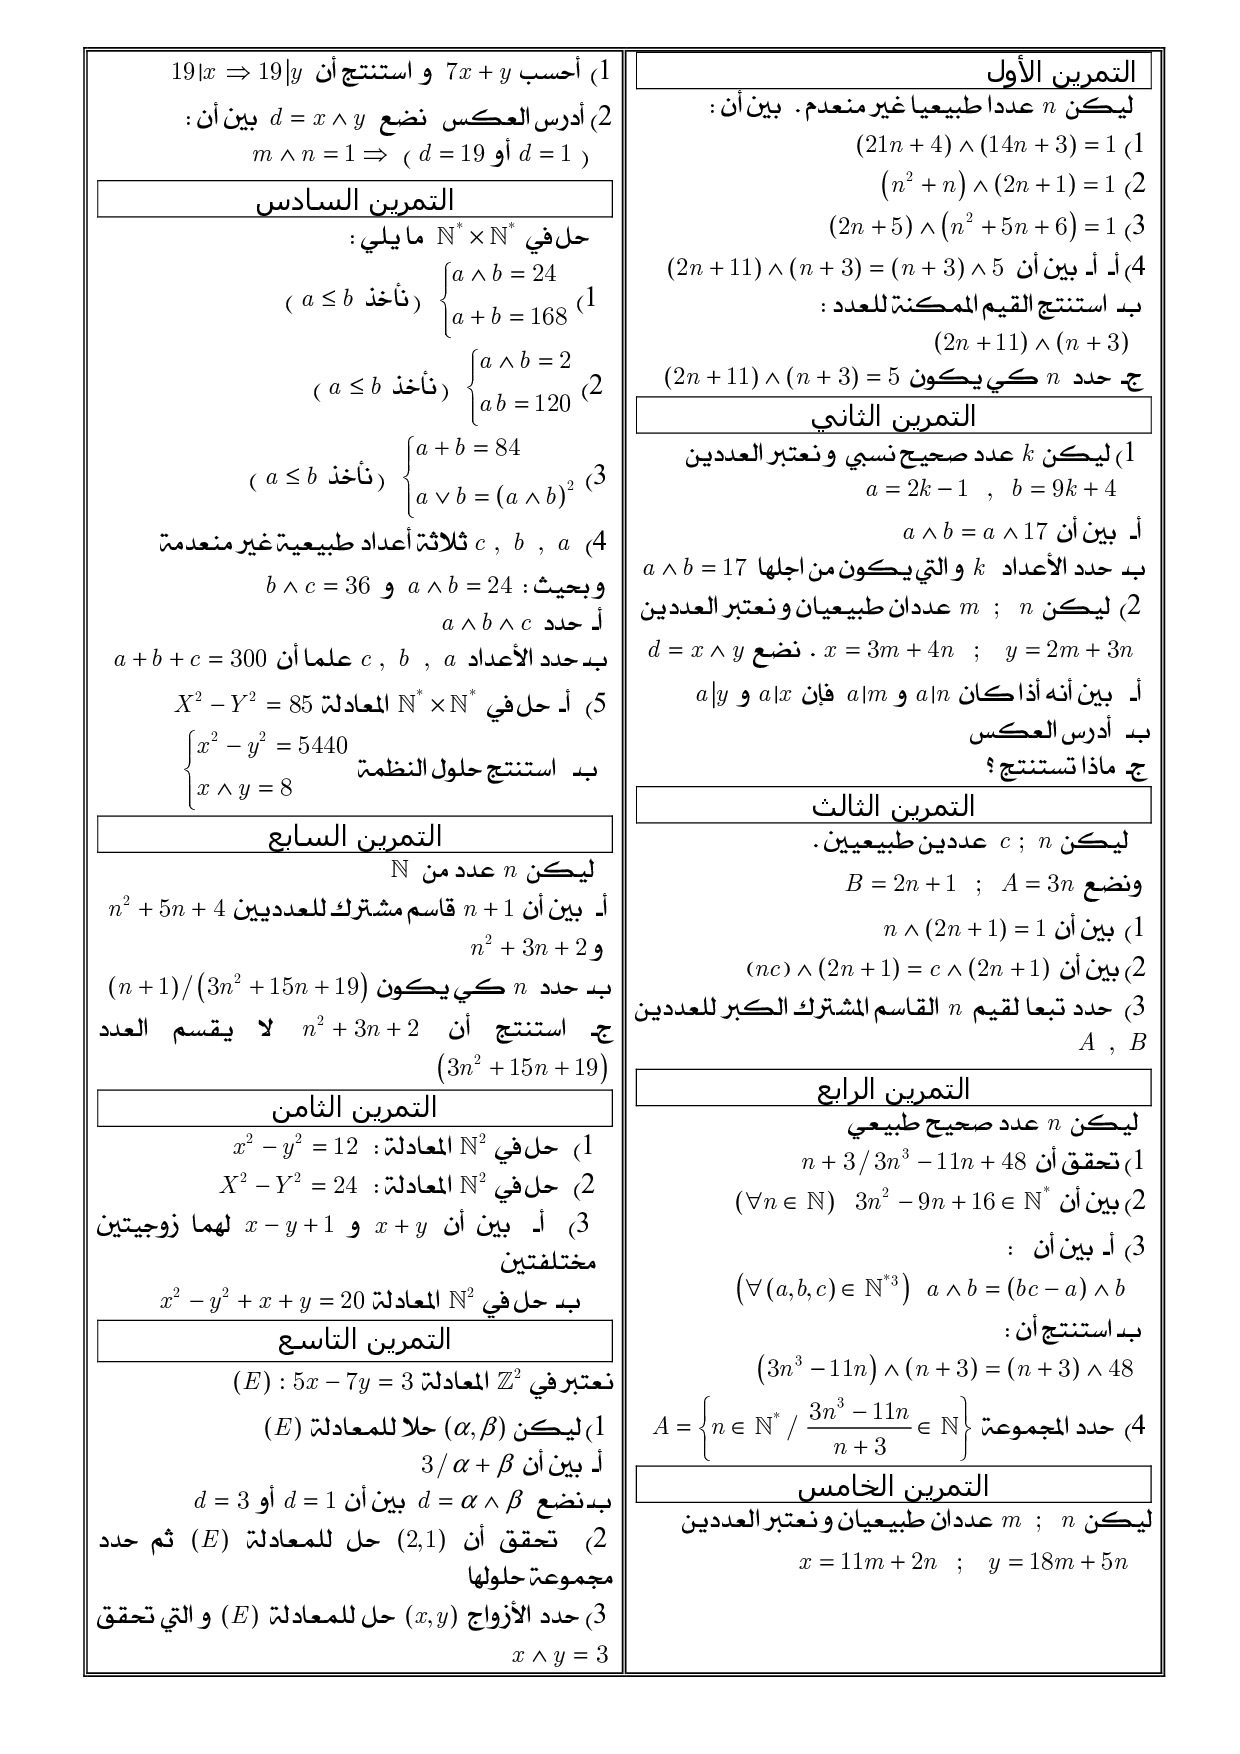 التمرين الأول
ليكن n عددا طبيعيا غير منعدم . بين أن :
1) (21n + 4) ∧ (14n + 3) = 1
2) (n² + n) ∧ (2n + 1) = 1
3) (2n + 5) ∧ (n² + 5n + 6) = 1
4) أـ أـ بين أن (2n + 11) ∧ (n + 3) = (n + 3) ∧ 5
بـ استنتج القيم الممكنة للعدد :
(2n + 11) ∧ (n + 3)
جـ حدد n كي يكون (2n + 11) ∧ (n + 3) = 5
التمرين الثاني
1) ليكن k عدد صحيح نسبي و نعتبر العددين
a = 2k − 1 , b = 9k + 4
أـ بين أن a ∧ b = a ∧ 17
بـ حدد الأعداد k و التي يكون من اجلها a ∧ b = 17
2) ليكن m ; n عددان طبيعيان و نعتبر العددين
x = 3m + 4n ; y = 2m + 3n . نضع d = x ∧ y
أـ بين أنه أذا كان a|n و a|m فإن a|x و a|y
بـ أدرس العكس
جـ ماذا تستنتج ؟
التمرين الثالث
ليكن c ; n عددين طبيعيين .
ونضع B = 2n + 1 ; A = 3n
1) بين أن n ∧ (2n + 1) = 1
2) بين أن (nc) ∧ (2n + 1) = c ∧ (2n + 1)
3) حدد تبعا لقيم n القاسم المشترك الكبر للعددين
A , B
التمرين الرابع
ليكن n عدد صحيح طبيعي
1) تحقق أن n + 3 / 3n³ − 11n + 48
2) بين أن (∀n ∈ ℕ) 3n² − 9n + 16 ∈ ℕ*
3) أـ بين أن :
(∀(a,b,c) ∈ ℕ*³) a ∧ b = (bc − a) ∧ b
بـ استنتج أن :
(3n³ − 11n) ∧ (n + 3) = (n + 3) ∧ 48
4) حدد المجموعة A = {n ∈ ℕ* / (3n³ − 11n)/(n + 3) ∈ ℕ}
التمرين الخامس
ليكن m ; n عددان طبيعيان و نعتبر العددين
x = 11m + 2n ; y = 18m + 5n
1) أحسب 7x + y و استنتج أن 19|x ⇒ 19|y
2) أدرس العكس نضع d = x ∧ y بين أن :
m ∧ n = 1 ⇒ ( d = 19 أو d = 1 )
التمرين السادس
حل في ℕ* × ℕ* ما يلي :
1) {a ∧ b = 24 ; a + b = 168 ( نأخذ a ≤ b )
2) {a ∧ b = 2 ; ab = 120 ( نأخذ a ≤ b )
3) {a + b = 84 ; a ∨ b = (a ∧ b)² ( نأخذ a ≤ b )
4) c , b , a ثلاثة أعداد طبيعية غير منعدمة
و بحيث : a ∧ b = 24 و b ∧ c = 36
أـ حدد a ∧ b ∧ c
بـ حدد الأعداد c , b , a علما أن a + b + c = 300
5) أـ حل في ℕ* × ℕ* المعادلة X² − Y² = 85
بـ استنتج حلول النظمة {x² − y² = 5440 ; x ∧ y = 8
التمرين السابع
ليكن n عدد من ℕ
أـ بين أن n + 1 قاسم مشترك للعدديين n² + 5n + 4
و n² + 3n + 2
بـ حدد n كي يكون (n + 1)/(3n² + 15n + 19)
جـ استنتج أن n² + 3n + 2 لا يقسم العدد
(3n² + 15n + 19)
التمرين الثامن
1) حل في ℕ² المعادلة : x² − y² = 12
2) حل في ℕ² المعادلة : X² − Y² = 24
3) أـ بين أن x + y و x − y + 1 لهما زوجيتين
مختلفتين
بـ حل في ℕ² المعادلة x² − y² + x + y = 20
التمرين التاسع
نعتبر في ℤ² المعادلة (E) : 5x − 7y = 3
1) ليكن (α, β) حلا للمعادلة (E)
أـ بين أن 3 / α + β
بـ نضع d = α ∧ β بين أن d = 1 أو d = 3
2) تحقق أن (2,1) حل للمعادلة (E) ثم حدد
مجموعة حلولها
3) حدد الأزواج (x, y) حل للمعادلة (E) و التي تحقق
x ∧ y = 3